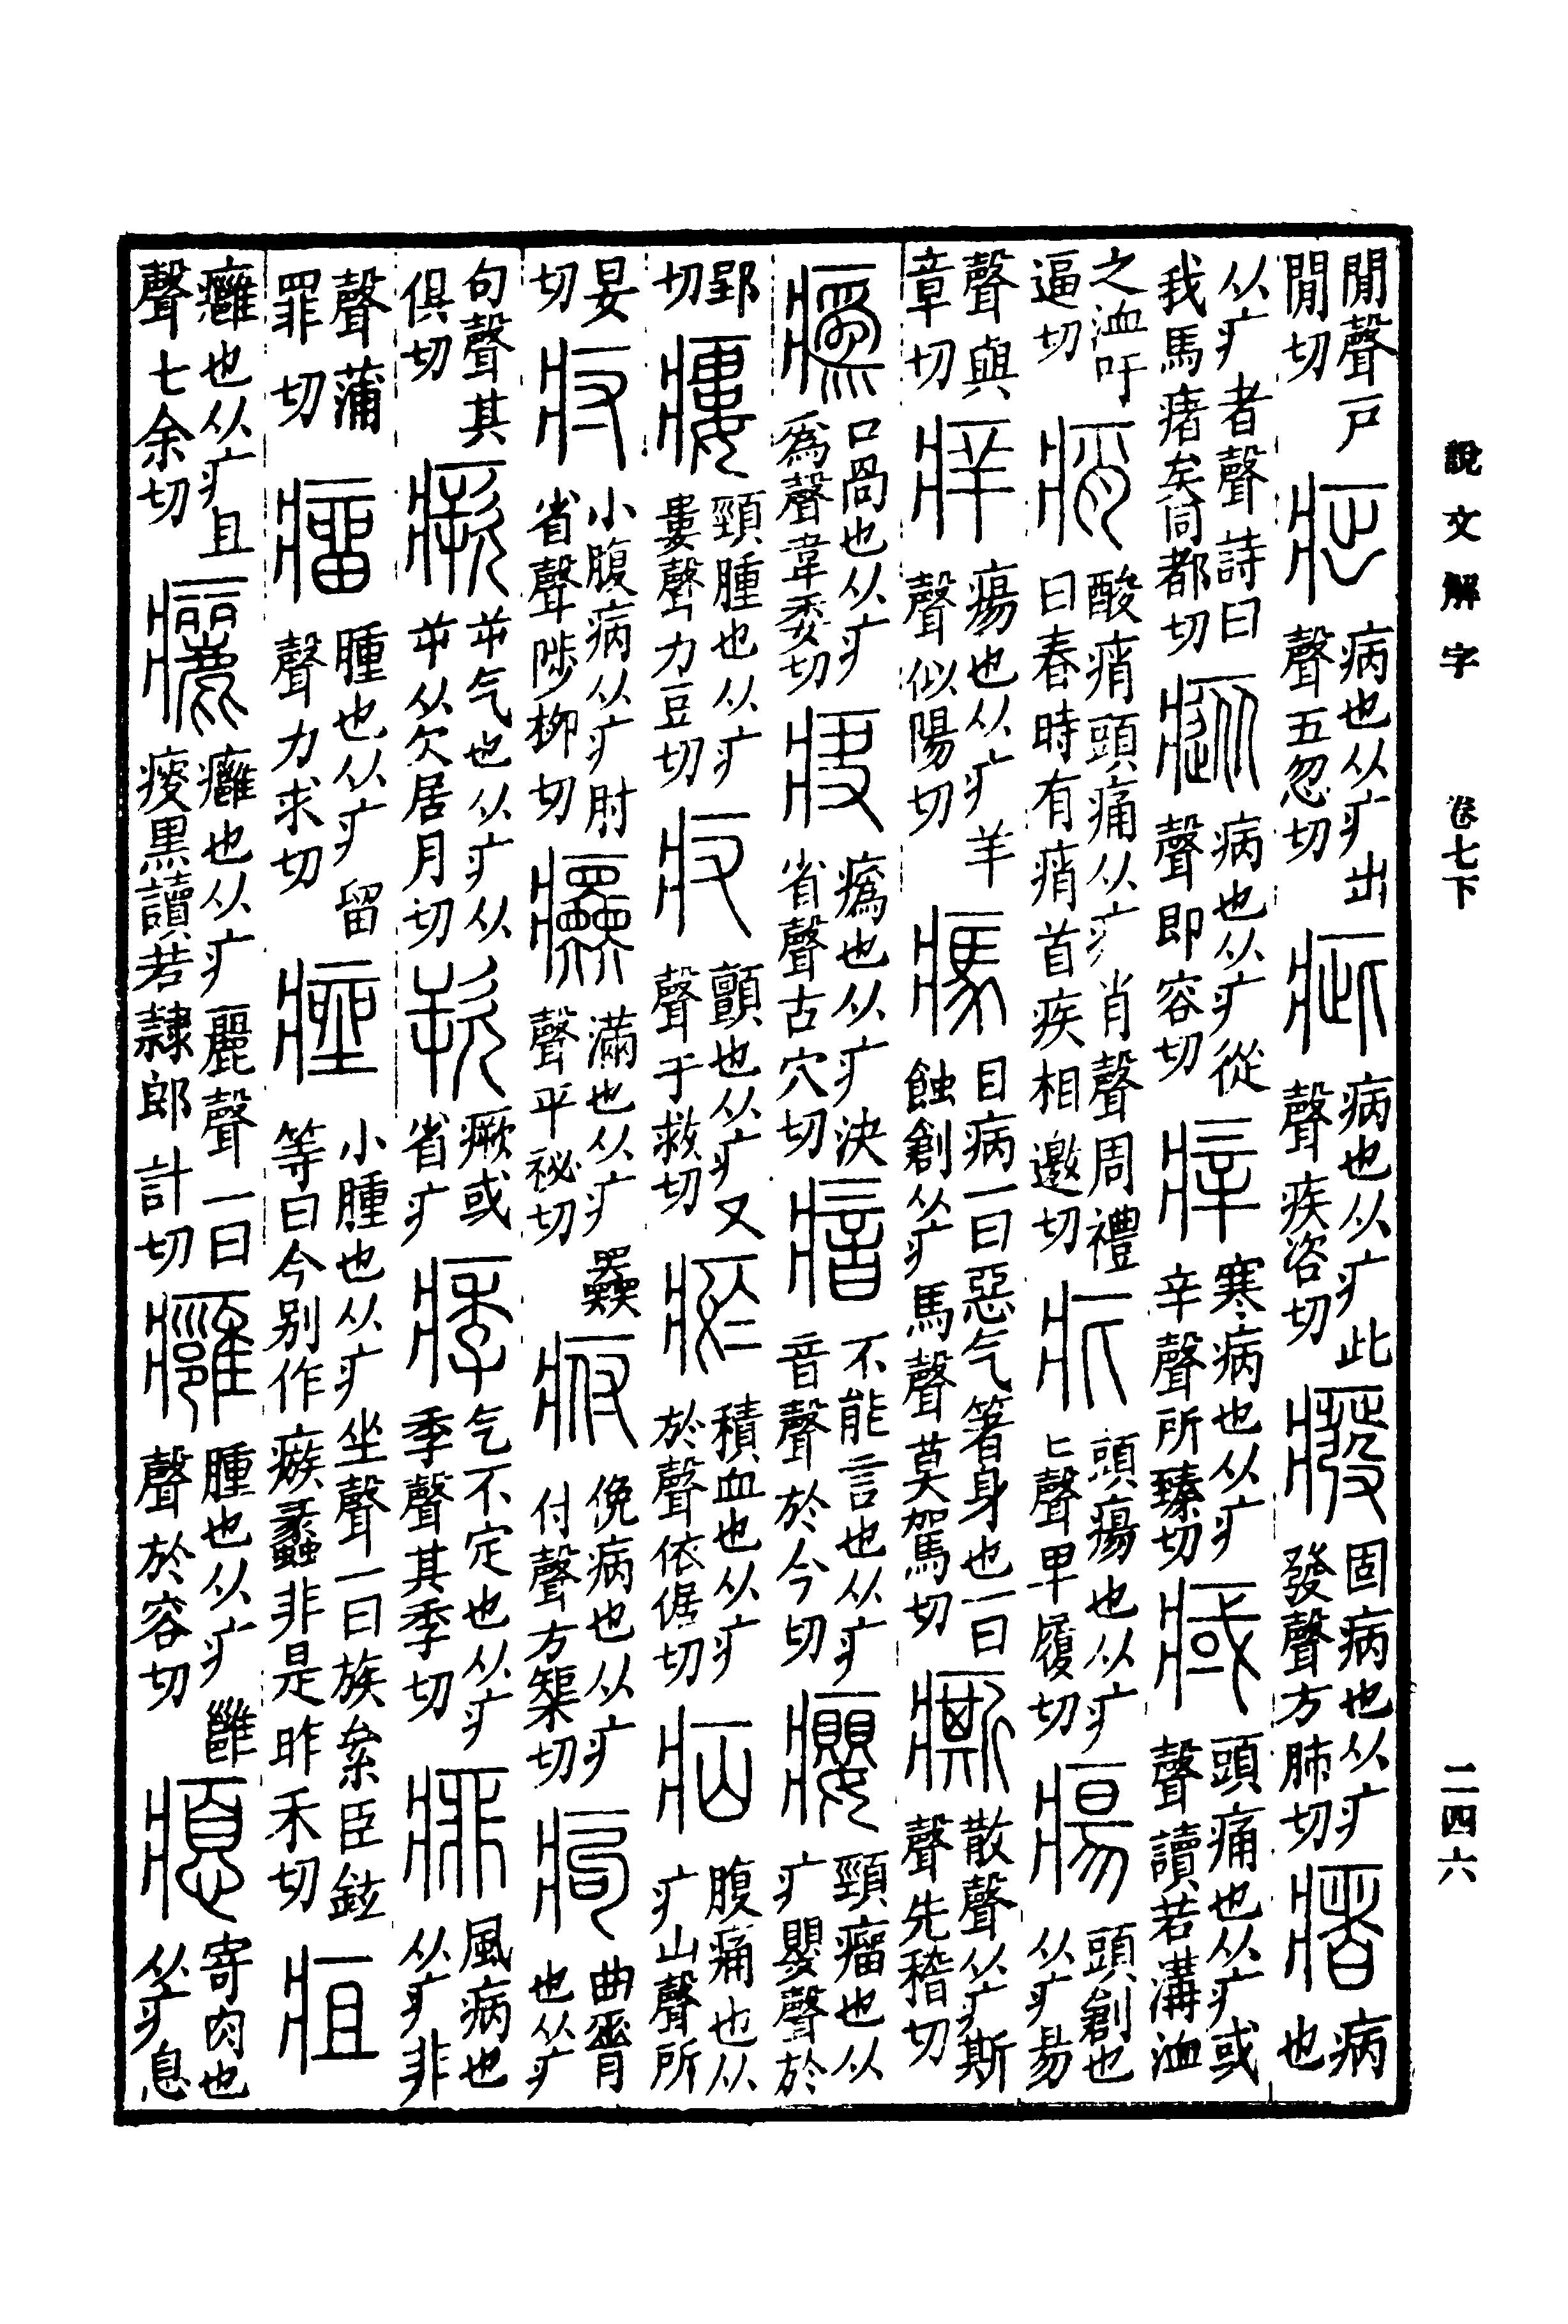 說文解字　卷七下　二四六
閒聲戶閒切　病也从疒出聲五忽切　疵　病也从疒此聲疾咨切　癈　固病也从疒發聲方肺切　瘏　病也
从疒者聲詩曰我馬瘏矣同都切　瘲　病也从疒從聲即容切　㾕　寒病也从疒辛聲所臻切　頭痛也从疒或聲讀若溝洫
之洫吁逼切　痟　酸痟頭痛从疒肖聲周禮曰春時有痟首疾相邀切　疕　頭瘍也从疒匕聲卑履切　瘍　頭創也从疒昜
聲與章切　痒　瘍也从疒羊聲似陽切　㾺　目病一曰惡气箸身也一曰蝕創从疒馬聲莫駕切　㾷　散聲从疒斯聲先稽切
口咼也从疒爲聲韋委切　疦　也从疒決省聲古穴切　瘖　不能言也从疒音聲於今切　癭　頸瘤也从疒嬰聲於
郢切　瘻　頸腫也从疒婁聲力豆切　顫也从疒又聲于救切　瘀　積血也从疒於聲依倨切　疝　腹痛也从疒山聲所
晏切　疛　小腹病从疒肘省聲陟柳切　滿也从疒聲平祕切　俛病也从疒付聲方榘切　痀　曲脊也从疒
句聲其俱切　瘚　屰气也从疒从屰从欠居月切　欮　瘚或省疒　痵　气不定也从疒季聲其季切　痱　風病也从疒非
聲蒲罪切　瘤　腫也从疒留聲力求切　痤　小腫也从疒坐聲一曰族絫臣鉉等曰今别作瘯蠡非是昨禾切　疽
癰也从疒且聲七余切　㿛　癰也从疒麗聲一曰瘦黑讀若隸郎計切　癰　腫也从疒雝聲於容切　瘜　寄肉也从疒息